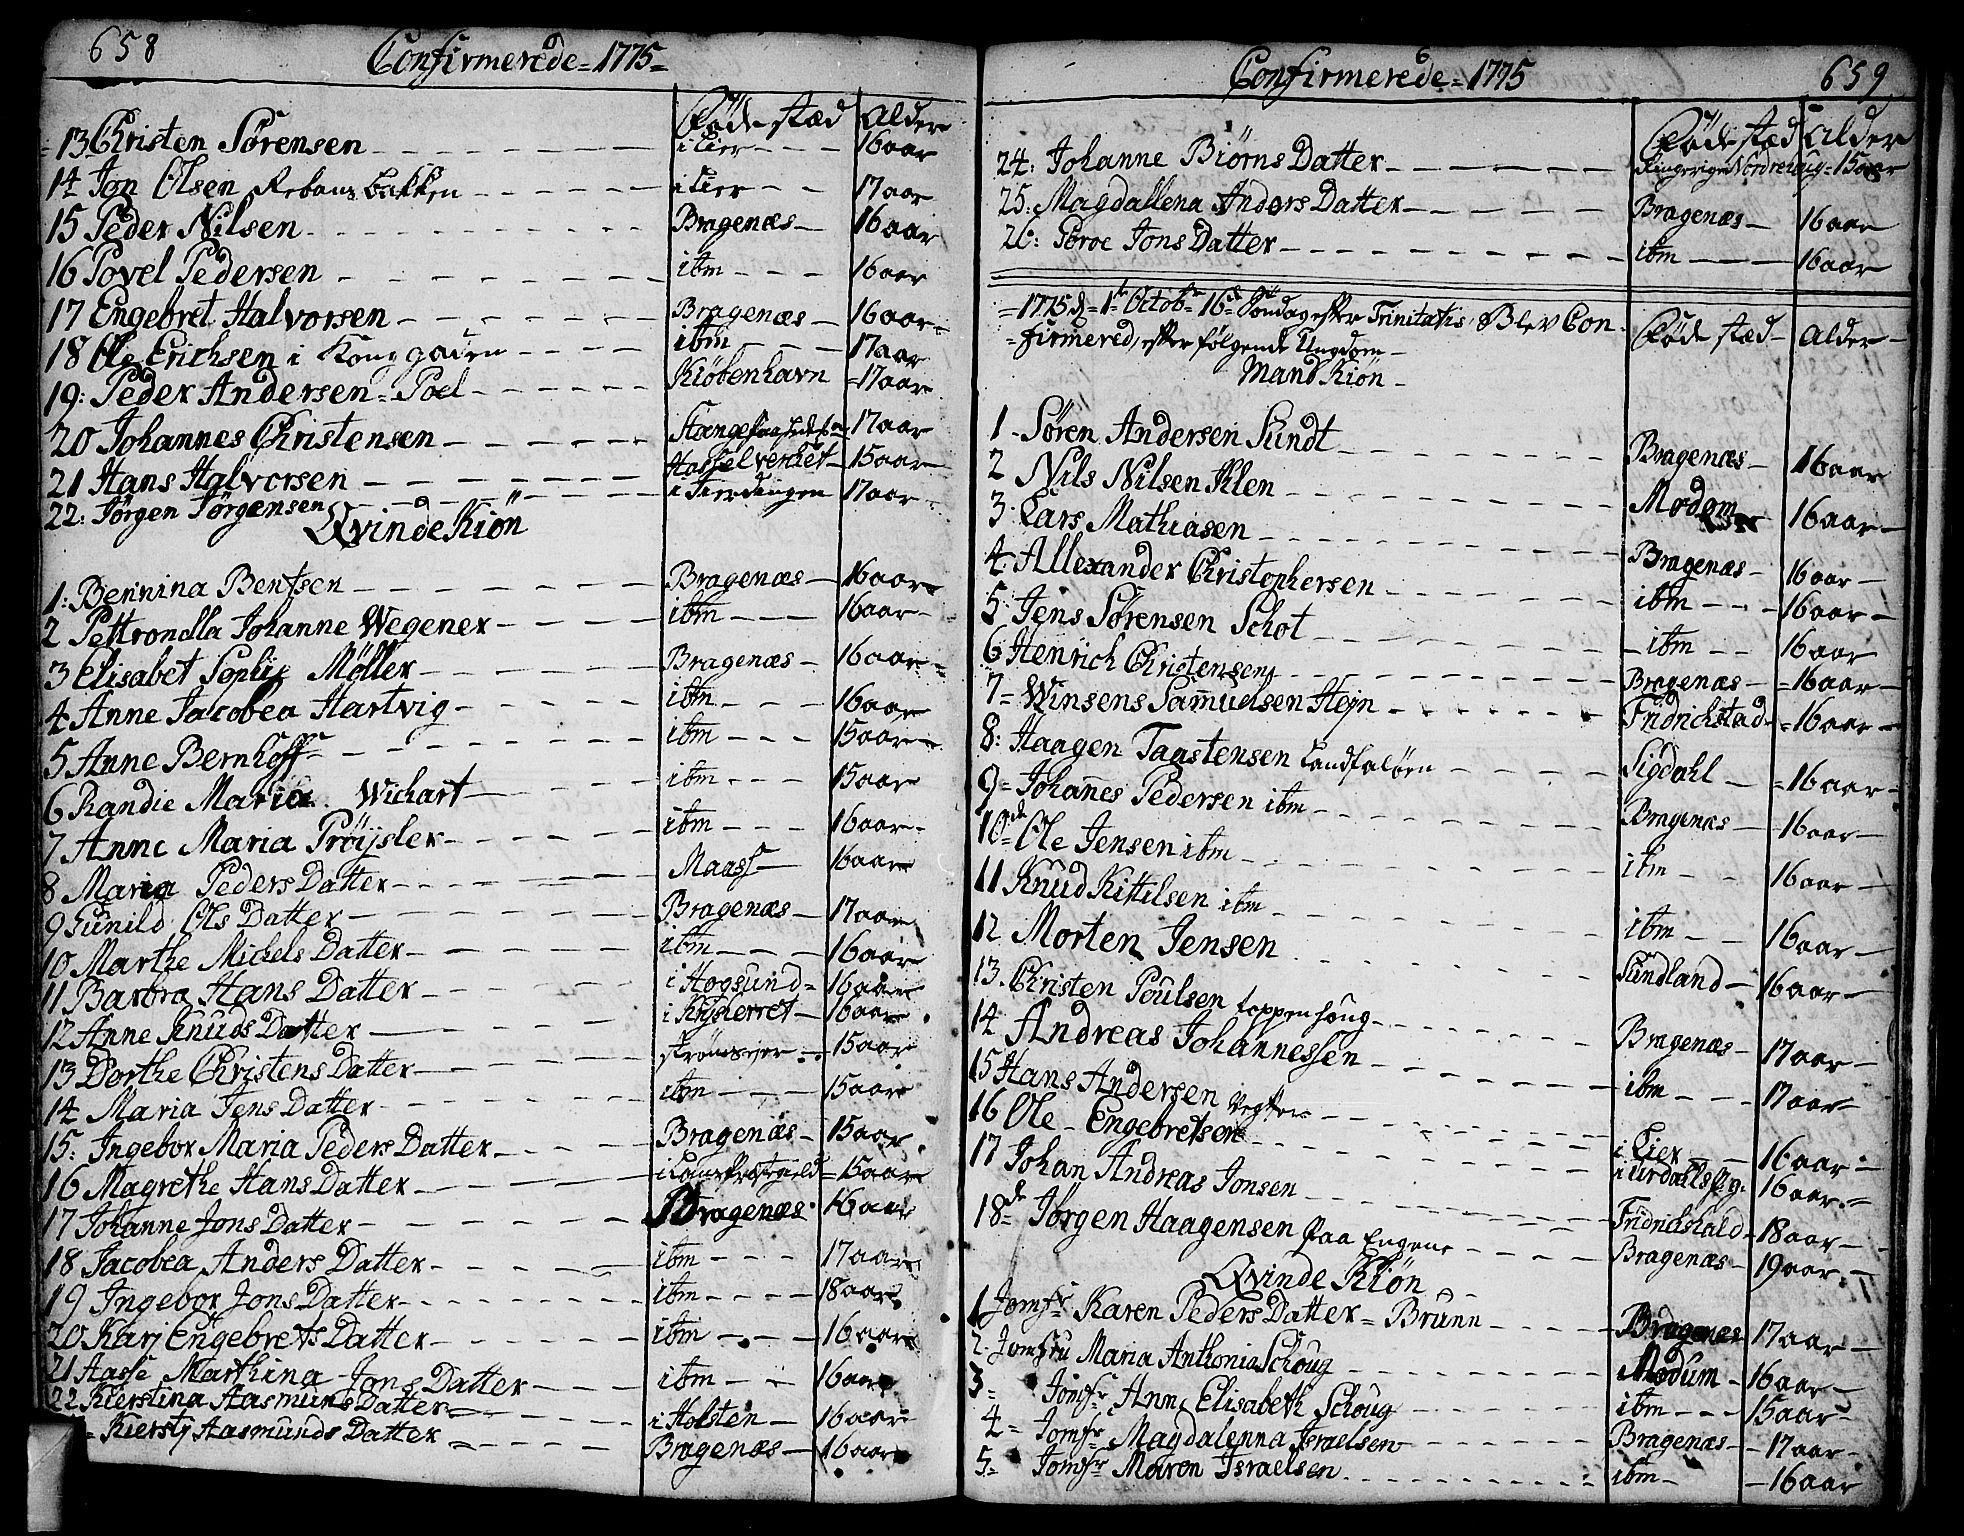 658 Confirmerede = 1775 =
Föde stæd Alder
13 Christen Sørensen i Lier 16 aar
14 Jon Olsen Rebans bakken i Lier 17 aar
15 Peder Nilsen Bragenæs 16 aar
16 Povel Pedersen ibm 16 aar
17 Engebret Halvorsen Bragenæs 16 aar
18 Ole Erichsen i Kong gaden ibm 17 aar
19: Peder Andersen = Poel Kiöbenhavn 17 aar
20 Johannes Christensen Stange 17 aar
21 Hans Halvorsen Hassel verchet 15 aar
22: Jörgen Jörgensen i Fierdingen 17 aar
Qvinde Kiön
1: Bennina Bentsen Bragenæs 16 aar
2 Pettronella Johanne Wegener ibm 16 aar
3 Elisabet Sophie Möller Bragenæs 16 aar
4 Anne Jacobea Hartvig ibm 16 aar
5 Anne Bernhoff ibm 15 aar
6 Randie Maria Wichart ibm 15 aar
7 Anne Maria Pröijsler ibm 16 aar
8 Maria Peders Datter Maass 16 aar
9 Gunild Ols Datter Bragenæs 17 aar
10 Marthe Michels Datter ibm 16 aar
11 Barbra Hans Datter i Hogsund 16 aar
12 Anne Knuds Datter i 16 aar
13 Dorthe Christens Datter 15 aar
14 Maria Jens Datter ibm 15 aar
15: Ingebor Maria Peders Datter Bragenæs 15 aar
16 Magrethe Hans Datter i 15 aar
17 Johanne Jons Datter Bragenæs 16 aar
18 Jacobea Anders Datter ibm 17 aar
19 Ingebor Jons Datter ibm 18 aar
20 Kari Engebrets Datter ibm 16 aar
21 Aasse Marthina Jons Datter ibm 16 aar
22 Kierstina Aasmuns Datter i Holsten 16 aar
Kiersty Aasmunds Datter Bragenæs 16 aar
Confirmerede = 1775 659
Föde stæd Alder
24: Johanne Biörns Datter Ringerige Nordrehaug 15 aar
25: Magdallena Anders Datter Bragenæs 16 aar
26: Jons Datter ibm 16 aar
= 1775 d = 1te Octobr 16de Söndag efter Trinitatis, Blev Con
= firmered, efter følgende Ungdom Föde stæd Alder
Mand Kiön
1 Søren Andersen Sundt Bragenæs 16 aar
2 Nils Nilsen Klen Modom 16 aar
3 Lars Mathiasen Bragenæs 16 aar
4 Allexander Christophersen ibm 16 aar
5 Jens Sørensen Schot ibm 16 aar
6 Henrich Christensen Bragenæs 16 aar
7 = Winsens Samuelsen Hejn Fridrichstad 16 aar
8: Haagen Taastensen Landfalöen Sigdahl 16 aar
9 = Johannes Pedersen ibm Bragenæs 16 aar
10de Ole Jensen ibm ibm 16 aar
11 Knud Kittilsen ibm ibm 16 aar
12 Morten Jensen Sundland 16 aar
13. Christen Poulsen toppenhoug Bragenæs 17 aar
14 Andreas Johannessen ibm 17 aar
15 Hans Andersen i Lier 16 aar
16 Ole Engebretsen i 16 aar
17 Johan Andreas Jonsen Fridrichshald 18 aar
18de Jørgen Haagensen paa Engene Bragenæs 19 aar
Qvinde Kiön
1 Jomfr Karen Peders Datter = Brunn Bragenæs 17 aar
2. Jomfru Maria Anthonia Schoug Modum 16 aar
3 = Jomfr Ann Elisabeth Schoug ibm 15 aar
4 = Jomfr Magdalenna Israelsen Bragenæs 17 aar
5 = Jomfr Maren Israelsen ibm 16 aar